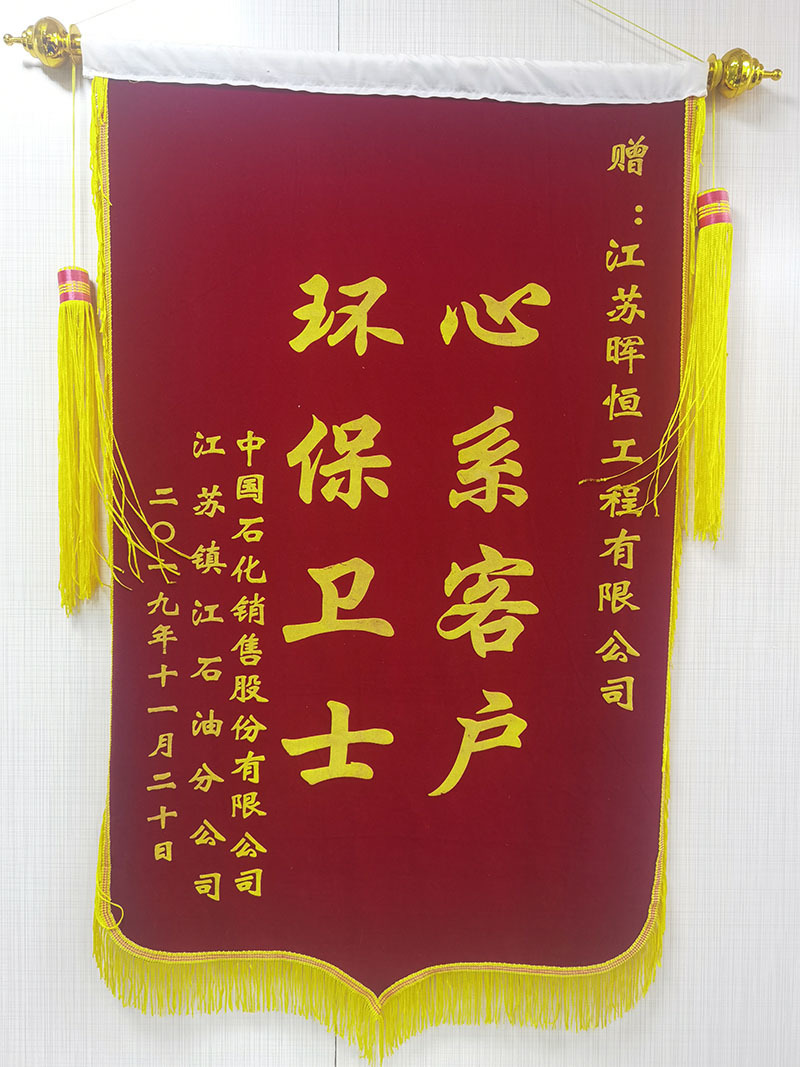 赠：江苏晖恒工程有限公司
心系客户
环保卫士
中国石化销售股份有限公司
江苏镇江石油分公司
二〇一九年十一月二十日